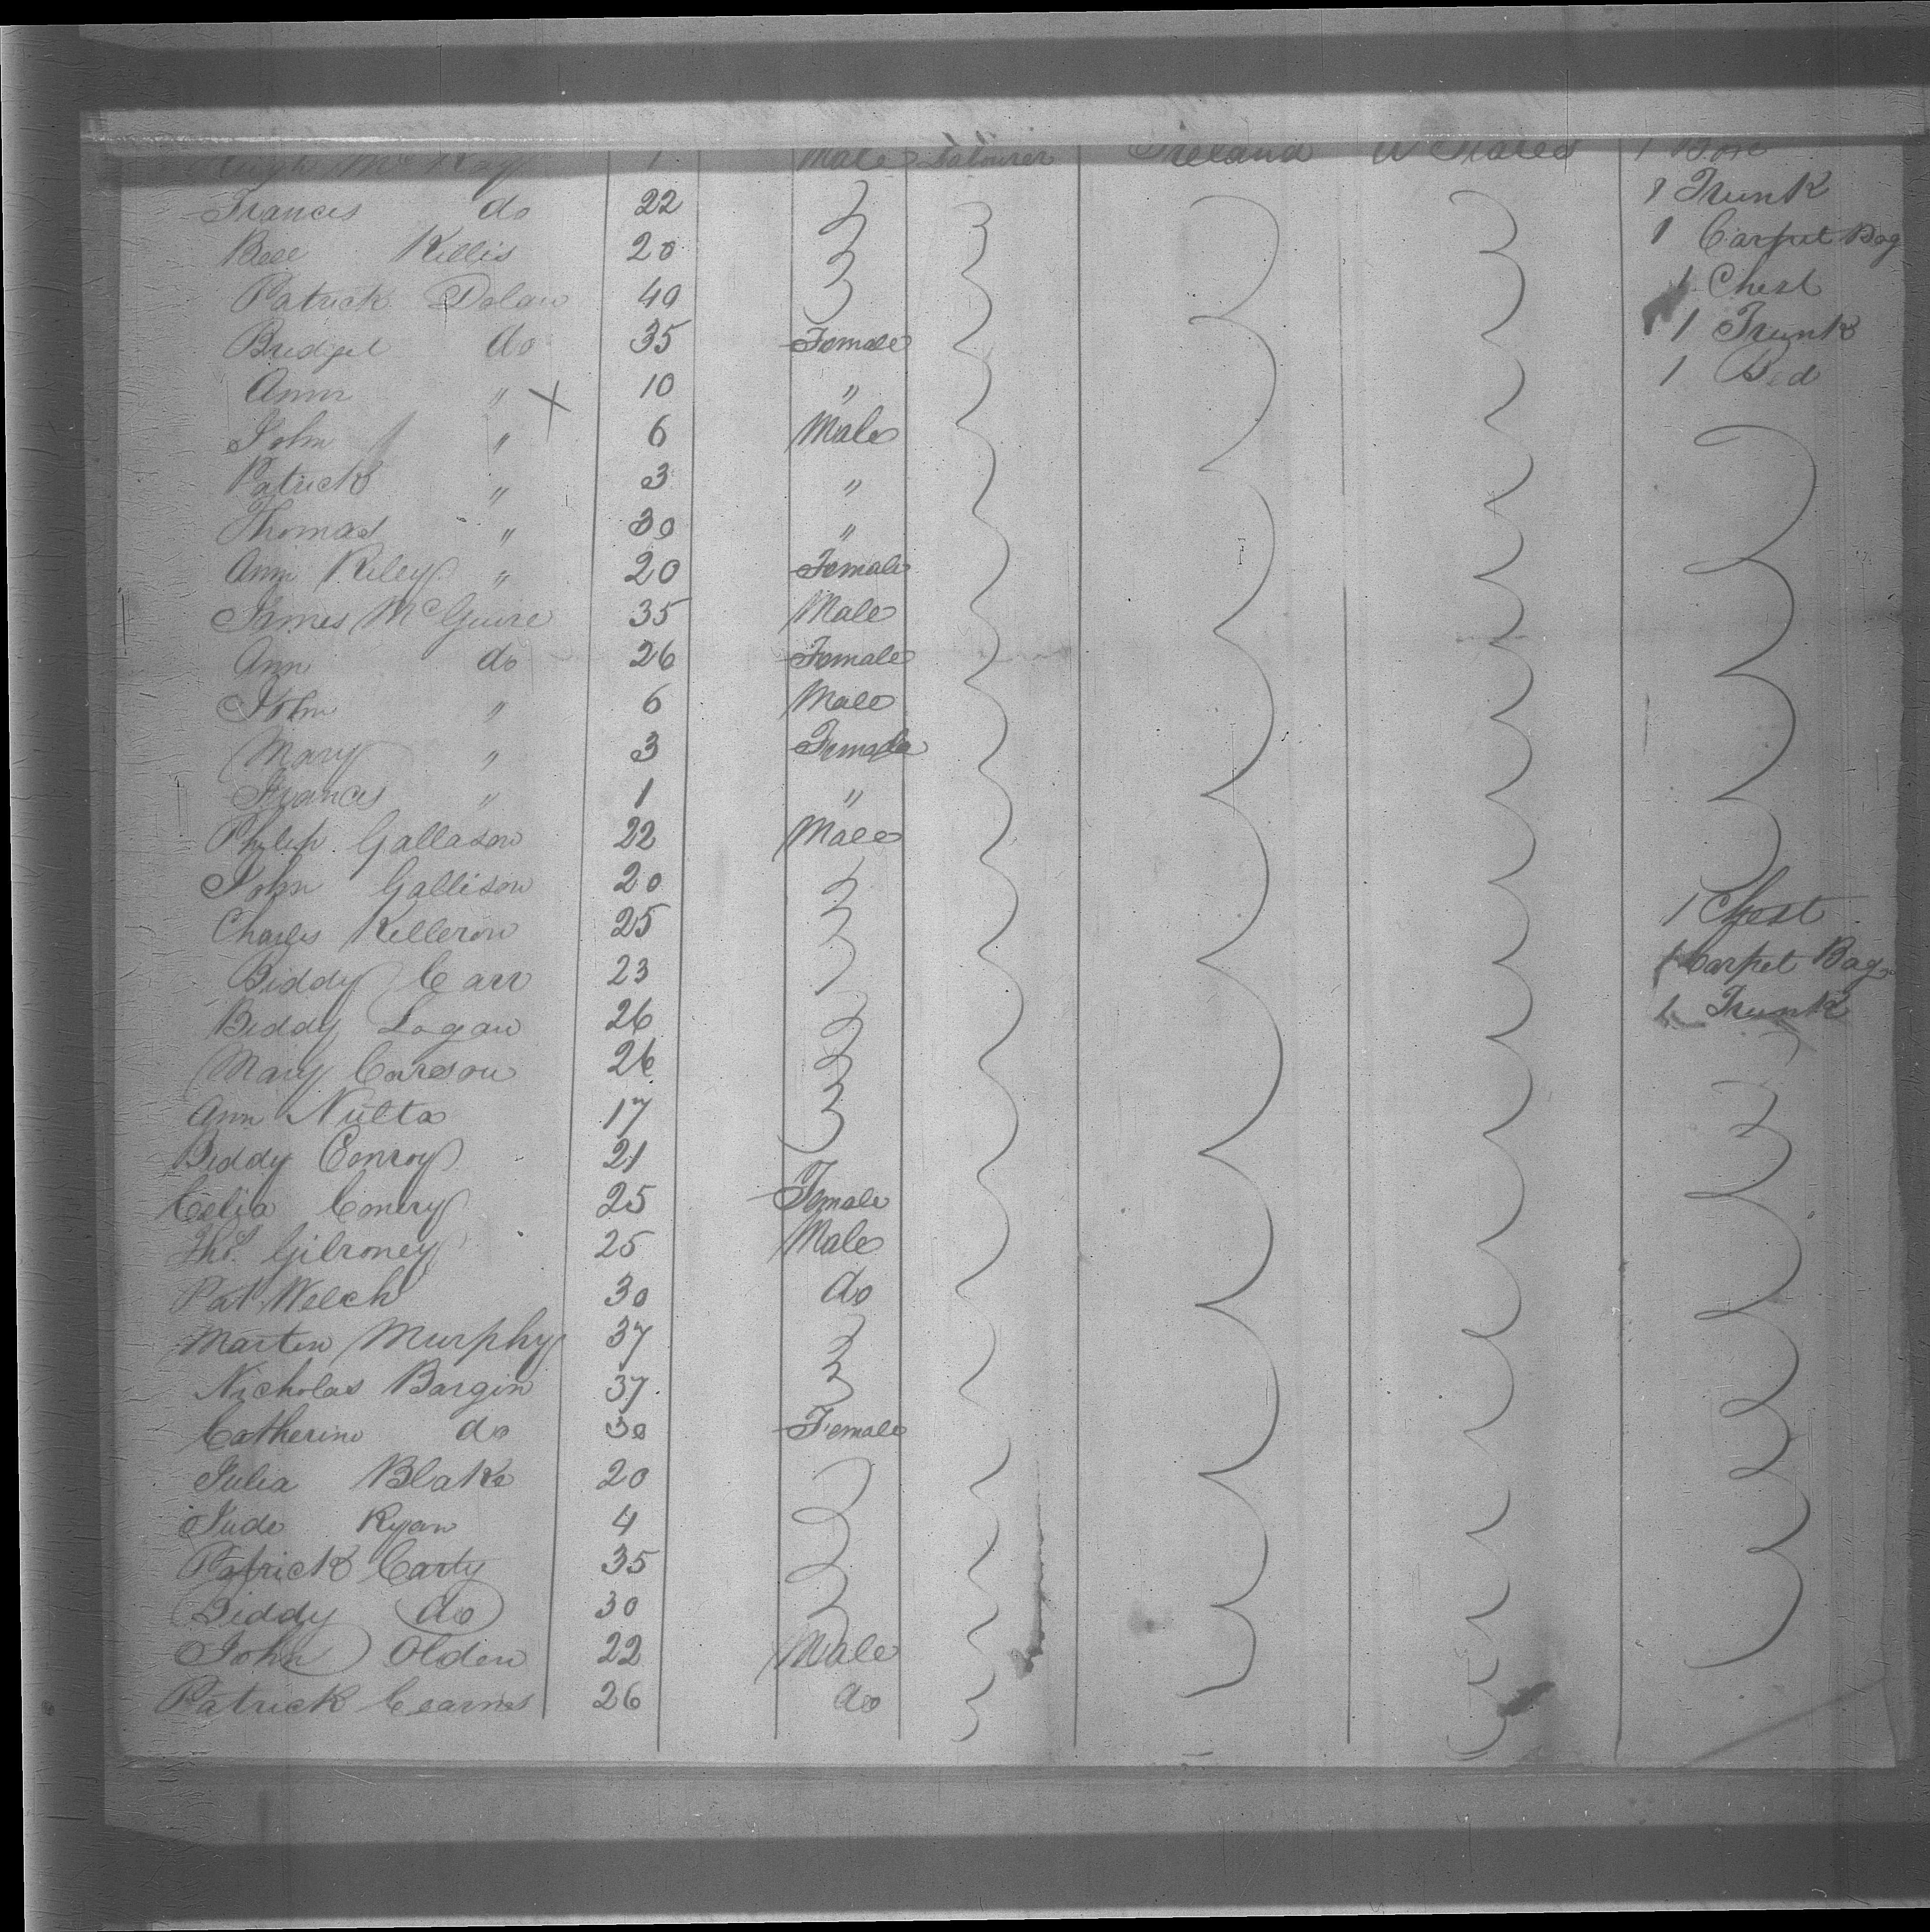 Hugh McKay 1 Male Labourer Ireland U States 1 Box
Francis do 22 1 Trunk
Bell Killis 20 1 Carpet Bag
Patrick Dolan 40 1 Chest
Bridget do 35 Female 1 Trunk
Ann " X 10 " 1 Bed
John " 6 Male
Patrick " 3 "
Thomas " 30 "
Ann Riley " 20 Female
James McGuire 35 Male
Ann do 26 Female
John " 6 Male
Mary " 3 Female
Francis " 1 "
Philip Gallason 22 Male
John Gallison 20
Charles Killeron 25 1 Chest
Biddy Carr 23 1 Carpet Bag
Biddy Logan 26 1 Trunk
Mary Carson 26
Ann Nulta 17
Biddy Conroy 21
Celia Conery 25 Female
Thos. Gilroney 25 Male
Pat Welch 30 do
Martin Murphy 37
Nicholas Bargin 37
Catherine do 30 Female
Julia Blake 20
Jude Ryan 4
Patrick Carty 35
Biddy do 30
John Olden 22 Male
Patrick Cearns 26 do